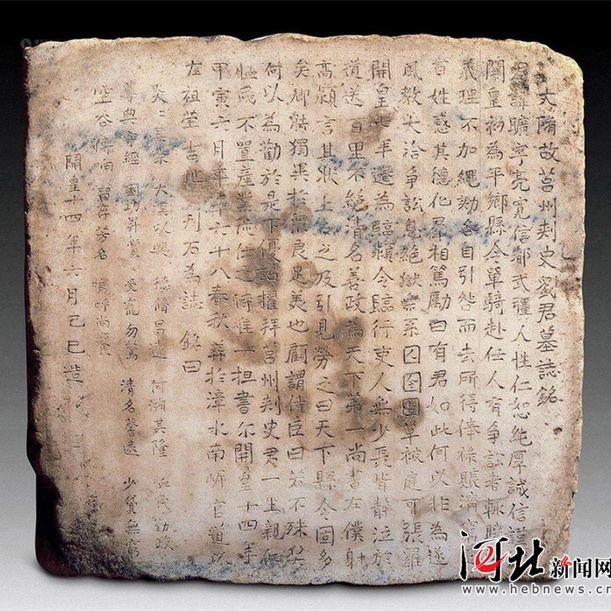 大隋故莒州刾史劉君墓誌銘
君諱曠字亮寬信都武彊人性仁恕純厚誠信謹
開皇初為平鄉縣令單騎赴任人有爭訟者輒
義理不加繩劾各自引咎而去所得俸祿賑濟
百姓感其德化更相篤勵曰有君如此何以非為遂
風教大洽爭訟息絕獄無系囚囹圄草被庭可張羅
開皇七年遷為臨潁令臨行吏人無少長皆號泣於
道送百里不絕清名善政為天下第一尚書左僕射
高熲言其狀上召之及引見勞之曰天下縣令固多
矣卿能獨異於眾良足美也顧謂侍臣曰若不殊獎
何以為勸於是下優詔擢拜莒州刾史君一生親仁
恤民不置產業赴任之時惟一担書尔開皇十四年
甲寅六月年六十八奉敕葬於漳水南岍官道以
左祖塋吉地刊石為誌 銘曰
大漢以興 何淵其隆
受寵勿驚 清名馨遠 少賢無
空谷傳向 留存芳名 嗚呼尚饗
開皇十四年六月己巳造
河北新闻网
www.hebnews.cn